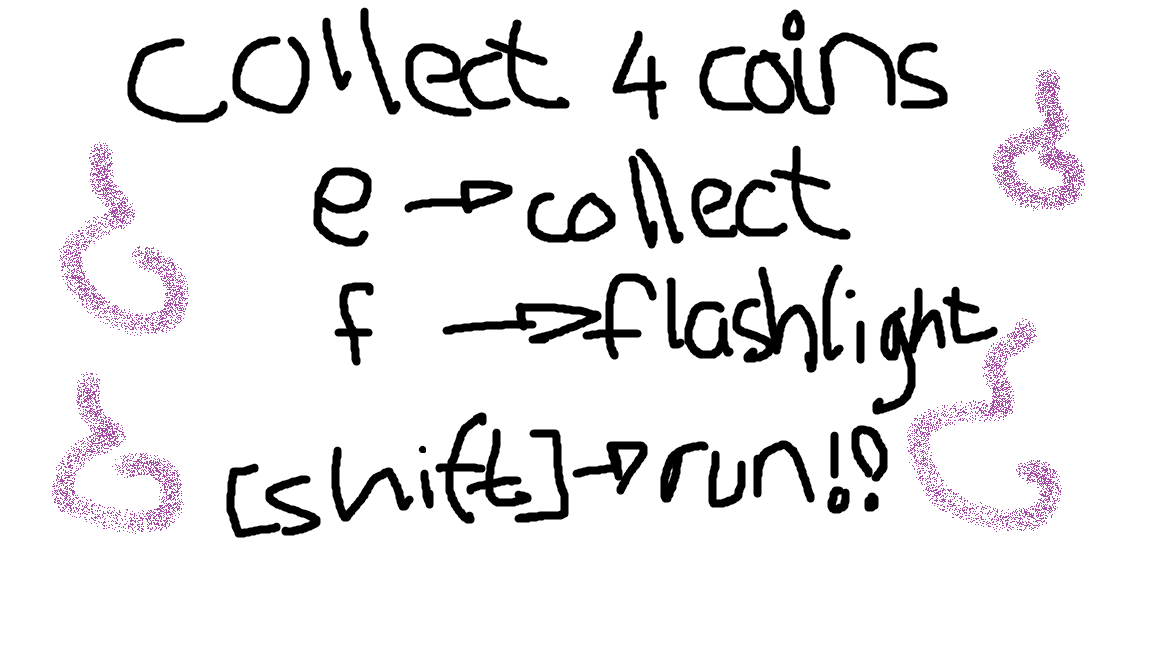 collect 4 coins
e → collect
f → flashlight
[shift] → run!?